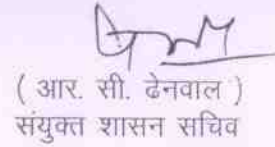 ( आर. सी. ढेनवाल )
संयुक्त शासन सचिव